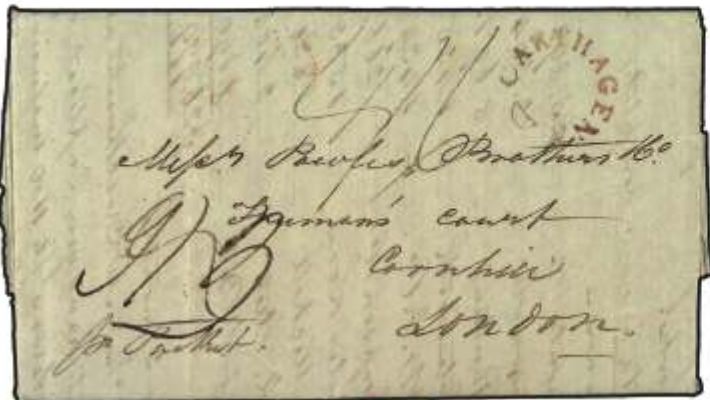 CARTHAGEN
Messrs Powles, Brothers & Co
Freeman's Court
Cornhill
London.
pr Packet.